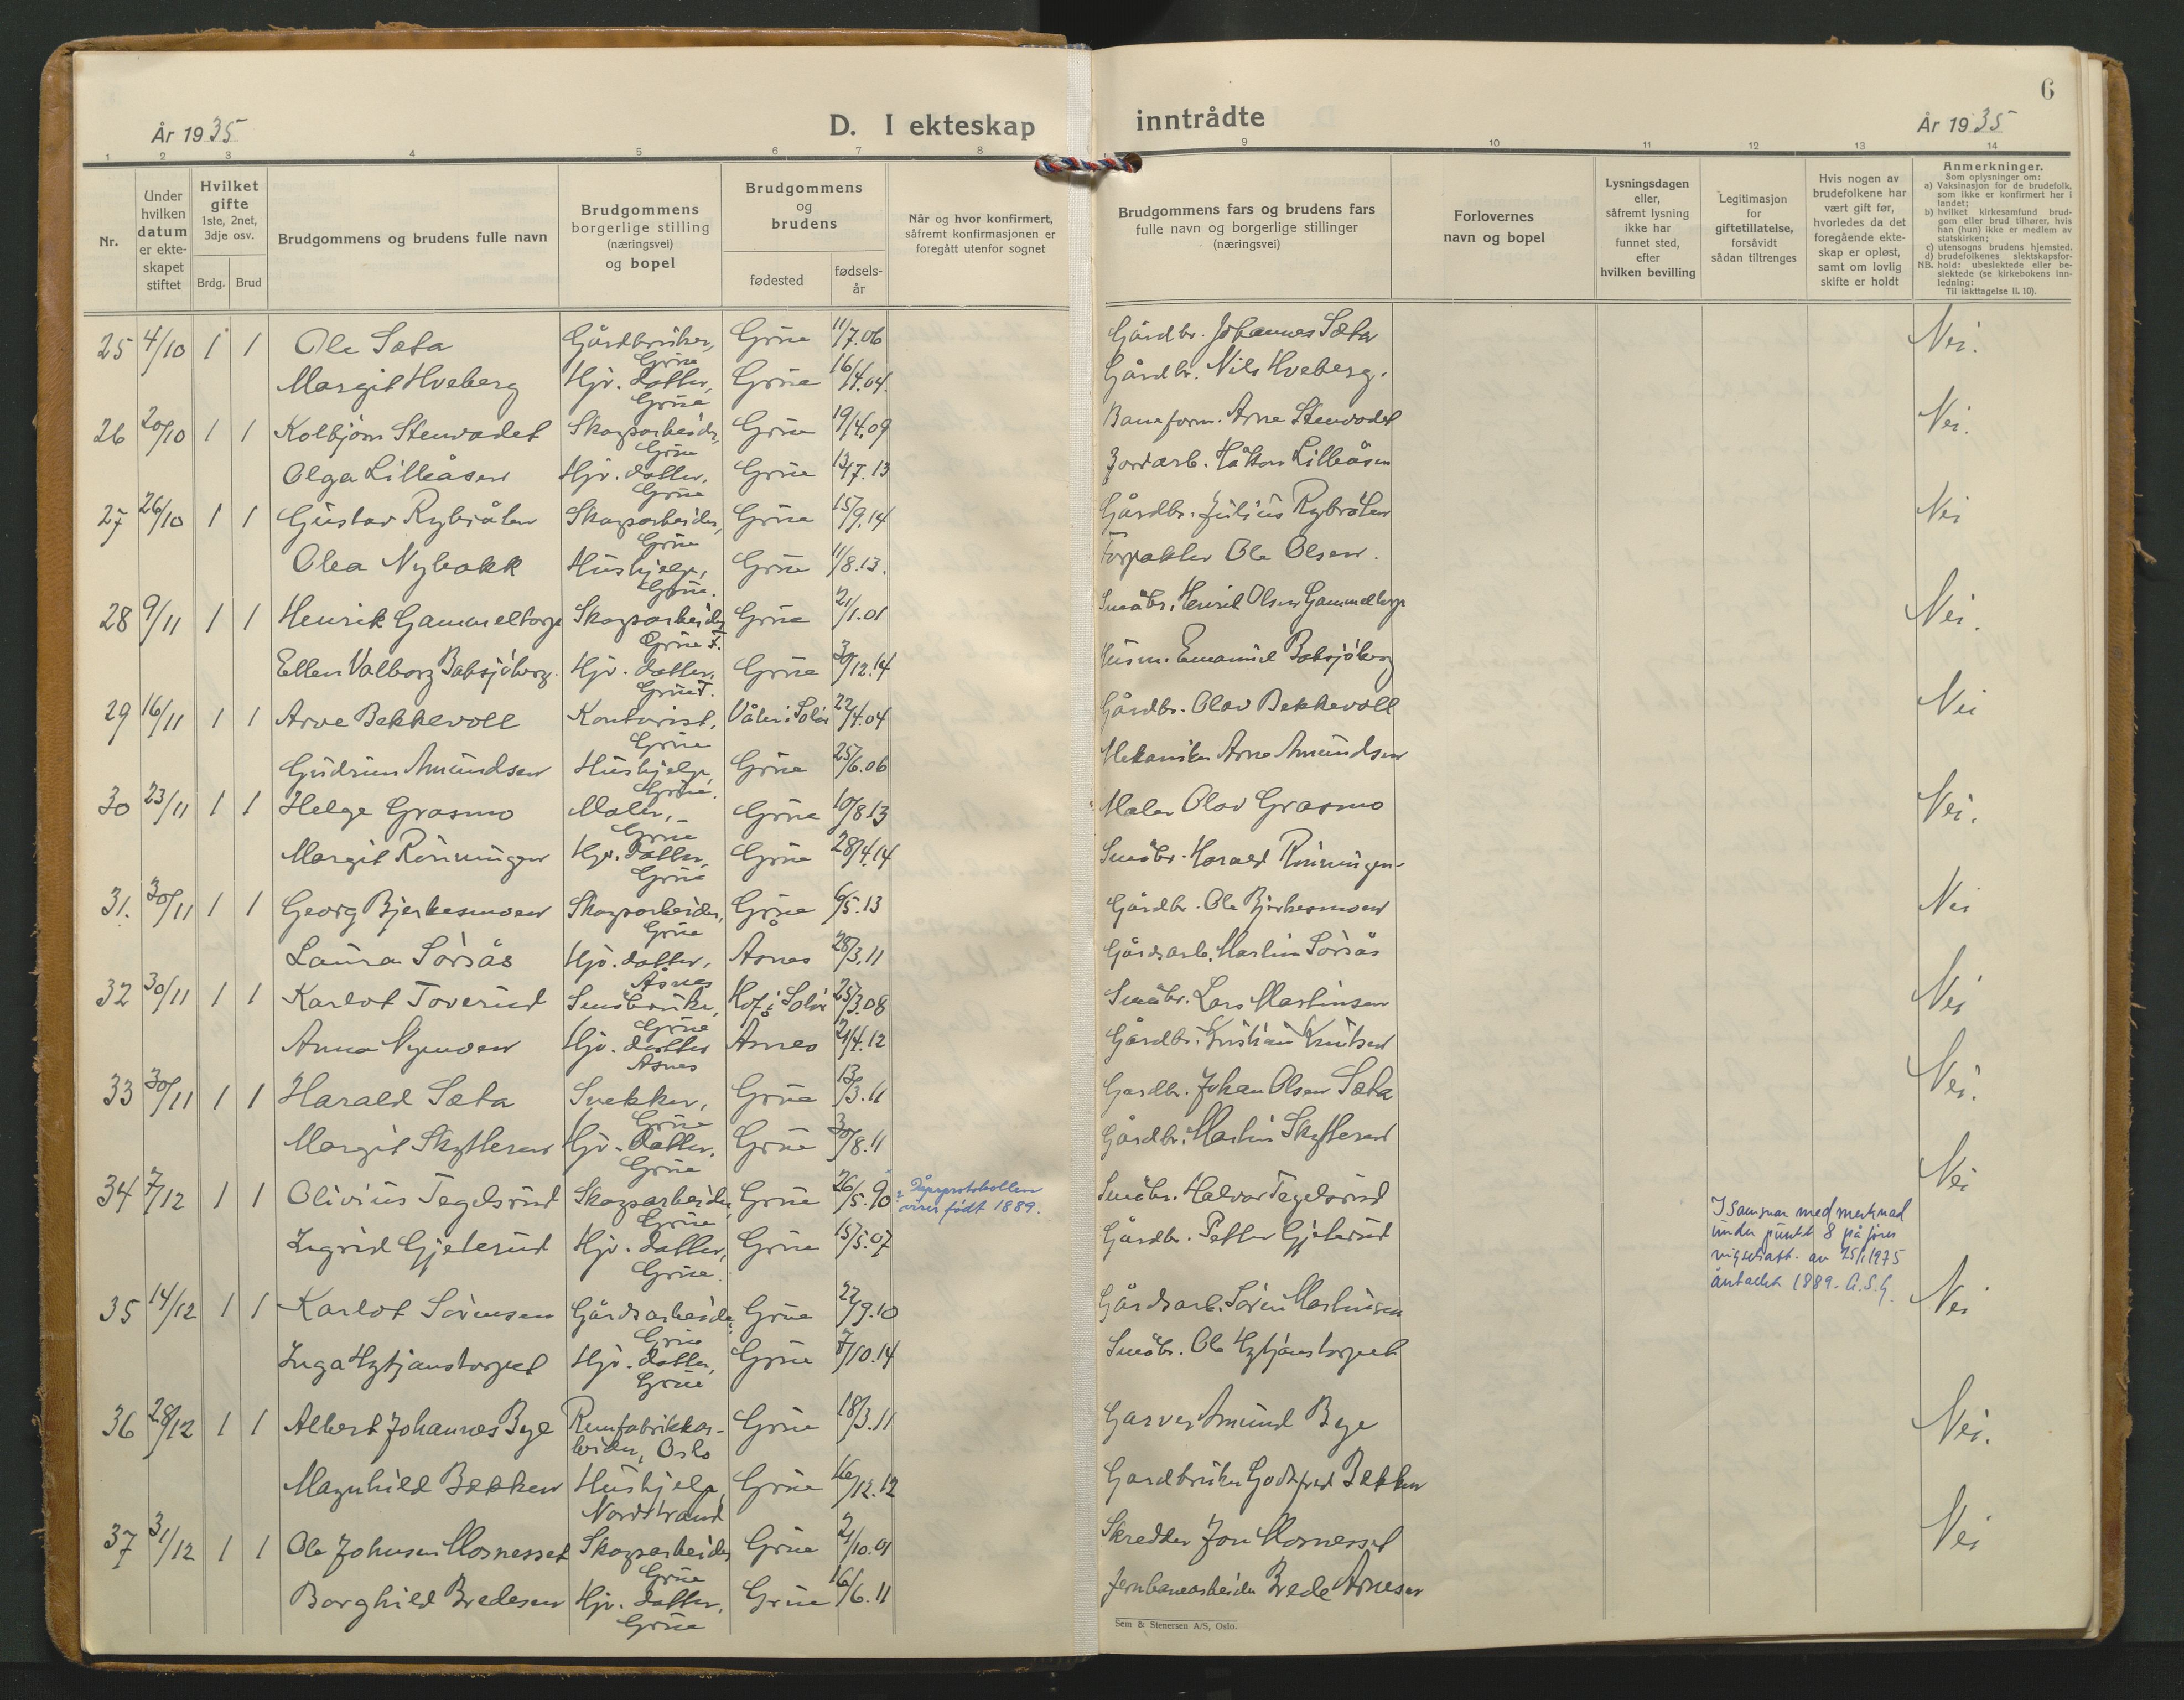 6
År 1935
D. I ekteskap inntrådte
År 1935
1 2 3 4 5 6 7 8 9 10 11 12 13 14
Nr.
Under hvilken datum er ekteskapet stiftet
Hvilket gifte 1ste, 2net, 3dje osv.
Brdg. Brud
Brudgommens og brudens fulle navn
Brudgommens borgerlige stilling (næringsvei) og bopel
Brudgommens og brudens
fødested
fødsels-år
Når og hvor konfirmert, såfremt konfirmasjonen er foregått utenfor sognet
Brudgommens fars og brudens fars fulle navn og borgerlige stillinger (næringsvei)
Forlovernes navn og bopel
Lysningsdagen eller, såfremt lysning ikke har funnet sted, efter hvilken bevilling
Legitimasjon for giftetillatelse, forsåvidt sådan tiltrenges
Hvis nogen av brudefolkene har vært gift før, hvorledes da det foregående ekteskap er opløst, samt om lovlig skifte er holdt
Anmerkninger.
Som oplysninger om:
a) Vaksinasjon for de brudefolk, som ikke er konfirmert her i landet;
b) hvilket kirkesamfund brudgom eller brud tilhører, hvis han (hun) ikke er medlem av statskirken;
c) utensogns brudens hjemsted.
d) brudefolkenes slektskapsforhold: ubeslektede eller beslektede (se kirkebokens innledning:
NB.
Til iakttagelse II. 10).
25 4/10 1 1 Ole Sæta Gårdbruker, Grue Grue 11/7.06 Gårdbr. Johannes Sæta Nei.
Margit Hveberg Hjv. datter, Grue Grue 16/4.04. Gårdbr. Nils Hveberg.
26 20/10 1 1 Kolbjørn Stenvadet Skogsarbeider, Grue Grue 19/4.09 Baneform. Arne Stenvadet Nei.
Olga Lilleåsen Hjv. datter, Grue Grue 13/7.13 Jordarb. Håkon Lilleåsen
27 26/10 1 1 Gustav Rybråten Skogsarbeider, Grue Grue 15/9.14 Gårdbr. Julius Rybråten Nei
Olea Nybakk Hushjelp, Grue. Grue 11/8.13. Forpakter Ole Olsen.
28 9/11 1 1 Henrik Gammeltorp Skogsarbeider Grue F. Grue 21/1.01 Småbr. Henrik Olsen Gammeltorp Nei.
Ellen Valborg Baksjøberg. Hjv. datter, Grue F. Grue 30/12.14 Husm. Emanuel Baksjøberg
29 16/11 1 1 Arve Bekkevoll Kontorist, Grue Våler i Solør 22/4.04 Gårdbr. Olav Bekkevoll Nei
Gudrun Amundsen Hushjelp, Grue. Grue 25/6.06 Mekaniker Arne Amundsen
30 23/11 1 1 Helge Grasmo Maler, Grue Grue 10/8.13 Maler Olav Grasmo Nei.
Margit Rønningen Hjv. datter, Grue Grue 28/4.14 Småbr. Harald Rønningen
31. 30/11 1 1 Georg Bjerkesmoen Skogsarbeider, Grue Grue 6/5.13 Gårdbr. Ole Bjerkesmoen Nei
Laura Sørsås Hjv. datter, Åsnes Åsnes 28/3.11 Gårdsarb. Martin Sørsås
32 30/11 1 1 Karlot Toverud Småbruker, Grue Hof i Solør 25/3.08 Småbr. Lars Martinsen Nei
Anna Nymoen Hjv. datter Åsnes Åsnes 21/4.12 Gårdbr. Kristian Knutsen
33 30/11 1 1 Harald Sæta Snekker, Grue Grue 13/3.11 Gardbr. Johan Olsen Sæta Nei.
Margit Skytteren Hjv. datter, Grue Grue 30/8.11 Gårdbr. Martin Skytteren
34 7/12 1 1 Olivius Tegelsrud Skogsarbeider, Grue Grue 26/5.90 ? Dåpsprotokollen viser født 1889. Småbr. Halvor Tegelsrud Nei
I samsvar med merknad under punkt 8 på av 25/1 1975 1889. A.S.G.
Ingrid Gjeterud Hjv. datter, Grue. Grue 15/5.07 Gårdbr. Petter Gjeterud
35 14/12 1 1 Karlot Sørensen Gårdsarbeider, Grue Grue 22/9.10 Gårdsarb. Søren Martinsen Nei
Inga Hytjanstorpet Hjv. datter, Grue Grue 7/10.14 Småbr. Ole Hytjanstorpet
36 28/12 1 1 Albert Johannes Bye Remfabrikkarbeider, Oslo Grue 18/3.11 Garver Amund Bye Nei.
Magnhild Bekken Hushjelp, Nordstrand Grue 16/12.12 Gardbruker Godtfred Bekken
37 31/12 1 1 Ole Johnsen Mosnesset Skogsarbeider Grue Grue 21/10.01 Skredder Jon Mosnesset Nei
Borghild Bredesen Hjv. datter, Grue Grue 16/6.11 Jernbanearbeider Brede Arnesen
Sem & Stenersen A/S, Oslo.